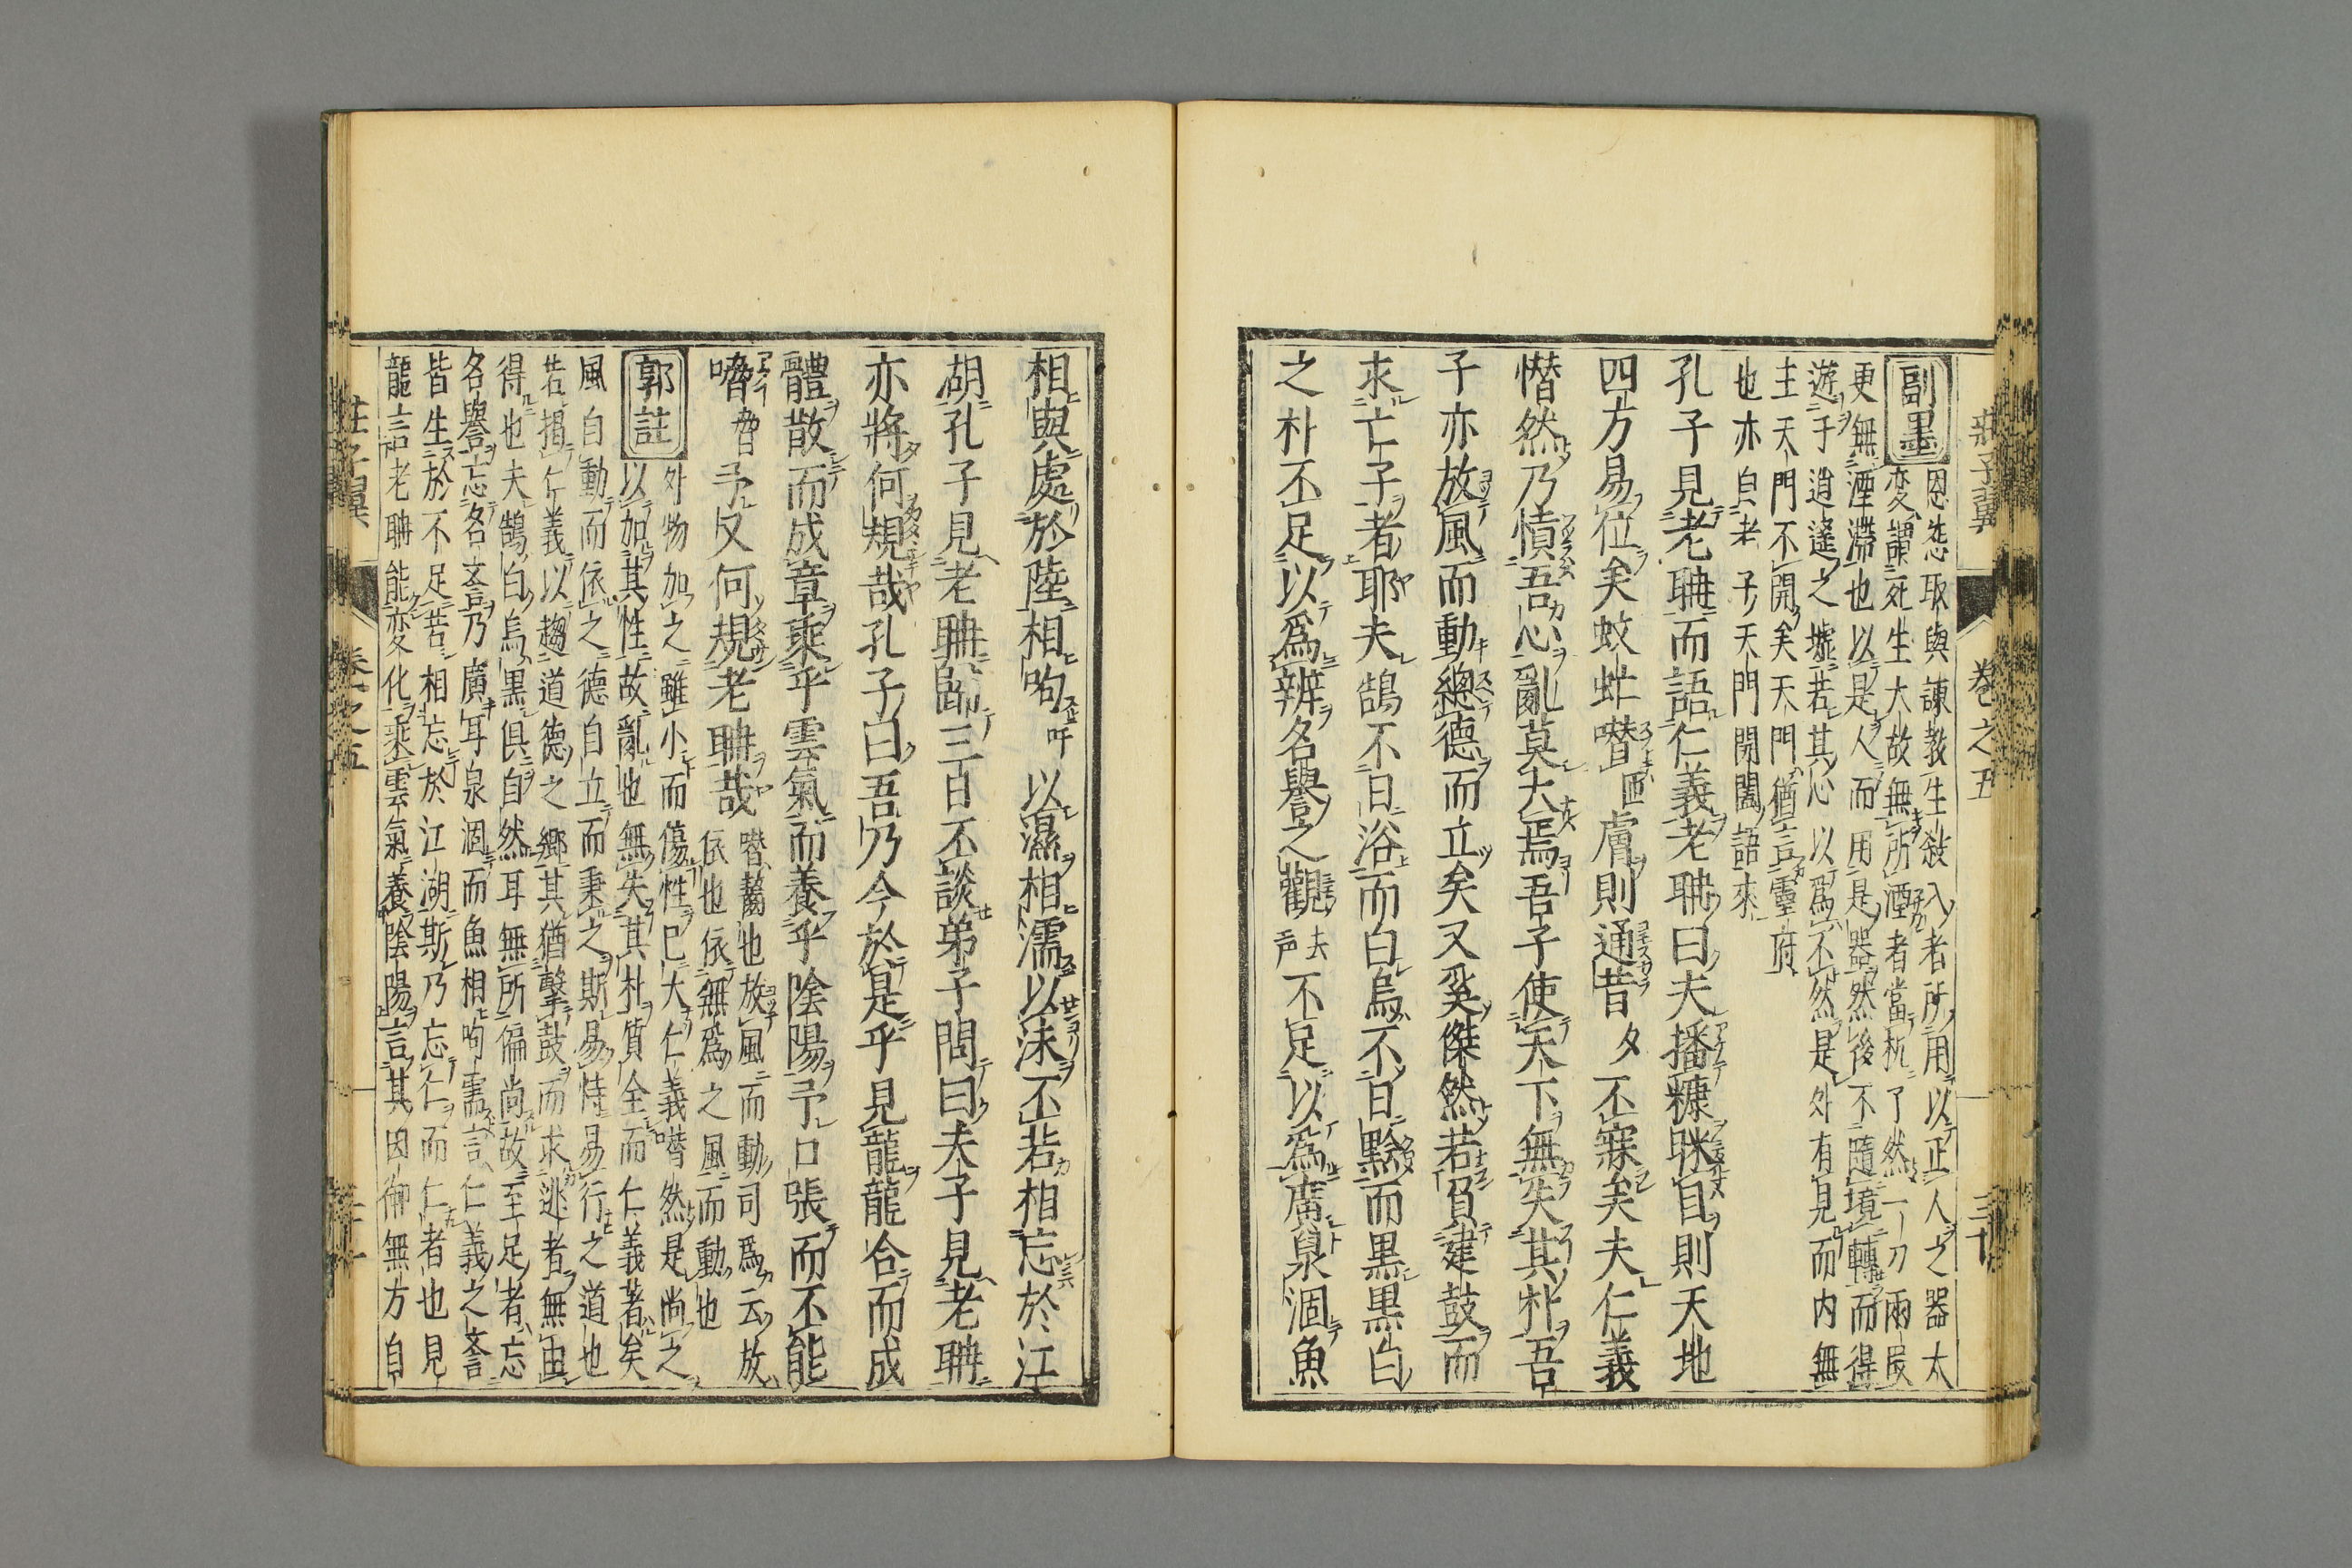 莊子翼 卷之五
副墨 恩怨取與諫教生殺八者所用以正人之器太
変謂死生大故無所湮者當机了然一刀兩叚
更無湮滯也以是人而用是器然後不隨境轉而得
遊于逍遙之墟若其心以爲不然是外有見而内無
主天門不開矣天門猶言靈府
也亦白老子天門開闔語來
孔子見老聃而語仁義老聃曰夫播糠眯目則天地
四方易位矣蚊虻噆匝膚則通昔夕不寐矣夫仁義
憯然乃憤吾心亂莫大焉吾子使天下無失其朴吾
子亦放風而動總德而立矣又奚傑然若負建鼓而
求亡子者耶夫鵠不日浴而白烏不日黔而黒黒白
之朴不足以爲辨名譽之觀去声不足以爲廣泉涸魚
相與處於陸相呴吁以濕相濡以沫不若相忘於江
湖孔子見老聃歸三日不談弟子問曰夫子見老聃
亦將何規哉孔子曰吾乃今於是乎見龍龍合而成
體散而成章乘乎雲氣而養乎陰陽予口張而不能
嗋脅予又何規老聃哉
噆齧也放風而動司爲云放
依也依無爲之風而動也
郭註 外物加之雖小而傷性已大仁義噆然是尚之
以加其性故亂也無失其朴質全而仁義者矣
風自動而依之德自立而秉之斯易恃易行之道也
若揭仁義以趨道德之鄉其猶擊鼓而求逃者無由
得也夫鵠白烏黒俱自然耳無所偏尚故至足者忘
名譽忘名譽乃廣耳泉涸而魚相呴濡言仁義之譽
皆生於不足若相忘於江湖斯乃忘仁而仁者也見
龍言老聃能変化乘雲氣養陰陽言其因御無方自
莊子翼 卷之五